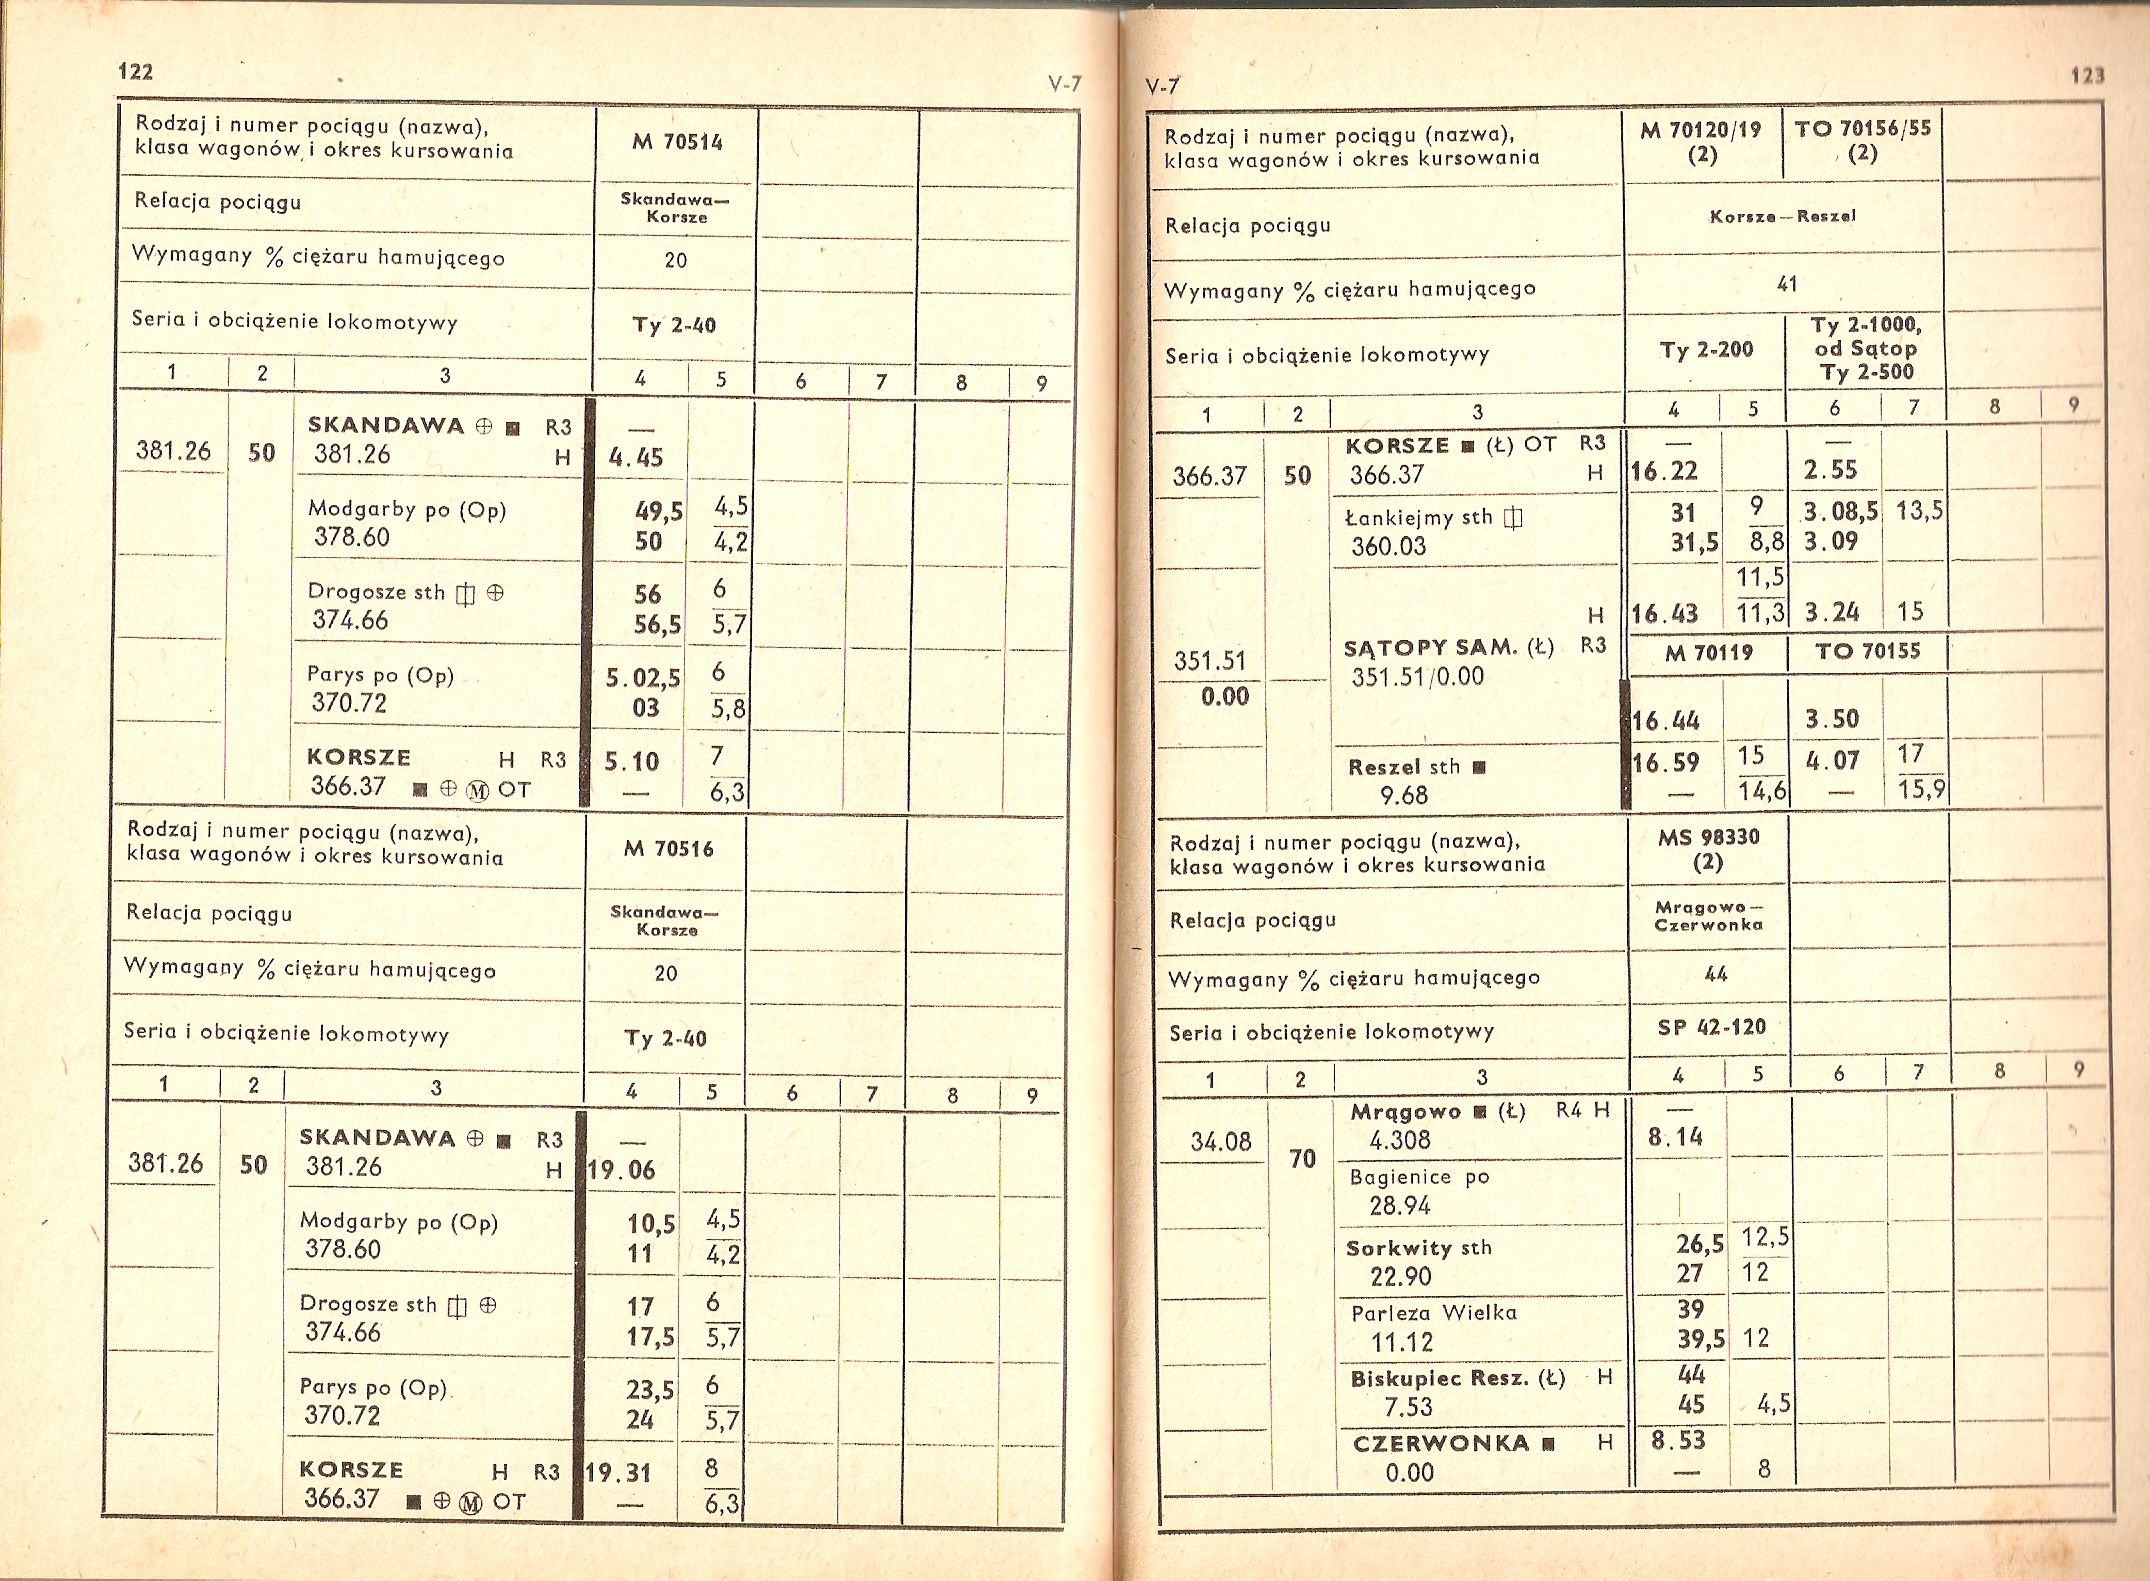 122
V-7
Rodzaj i numer pociągu (nazwa),
klasa wagonów i okres kursowania
M 70514
Relacja pociągu
Skandawa—
Korsze
Wymagany % ciężaru hamującego
20
Seria i obciążenie lokomotywy
Ty 2-40
1 2 3 4 5 6 7 8 9
SKANDAWA ⊕ ■ R3 —
381.26 50 381.26 H 4.45
Modgarby po (Op) 49,5 4,5
378.60 50 4,2
Drogosze sth ⊕ 56 6
374.66 56,5 5,7
Parys po (Op) 5.02,5 6
370.72 03 5,8
KORSZE H R3 5.10 7
366.37 ■ ⊕ Ⓜ OT — 6,3
Rodzaj i numer pociągu (nazwa),
klasa wagonów i okres kursowania
M 70516
Relacja pociągu
Skandawa—
Korsze
Wymagany % ciężaru hamującego
20
Seria i obciążenie lokomotywy
Ty 2-40
1 2 3 4 5 6 7 8 9
SKANDAWA ⊕ ■ R3 —
381.26 50 381.26 H 19.06
Modgarby po (Op) 10,5 4,5
378.60 11 4,2
Drogosze sth ⊕ 17 6
374.66 17,5 5,7
Parys po (Op) 23,5 6
370.72 24 5,7
KORSZE H R3 19.31 8
366.37 ■ ⊕ Ⓜ OT — 6,3
V-7
123
Rodzaj i numer pociągu (nazwa),
klasa wagonów i okres kursowania
M 70120/19
(2)
TO 70156/55
(2)
Relacja pociągu
Korsze—Reszel
Wymagany % ciężaru hamującego
41
Seria i obciążenie lokomotywy
Ty 2-200
Ty 2-1000,
od Sątop
Ty 2-500
1 2 3 4 5 6 7 8 9
KORSZE ■ (Ł) OT R3 — —
366.37 50 366.37 H 16.22 2.55
Łankiejmy sth 31 9 3.08,5 13,5
360.03 31,5 8,8 3.09
11,5
H 16.43 11,3 3.24 15
351.51 SĄTOPY SAM. (Ł) R3 M 70119 TO 70155
0.00 351.51/0.00
16.44 3.50
Reszel sth ■ 16.59 15 4.07 17
9.68 — 14,6 — 15,9
Rodzaj i numer pociągu (nazwa),
klasa wagonów i okres kursowania
MS 98330
(2)
Relacja pociągu
Mrągowo—
Czerwonka
Wymagany % ciężaru hamującego
44
Seria i obciążenie lokomotywy
SP 42-120
1 2 3 4 5 6 7 8 9
Mrągowo ■ (Ł) R4 H —
34.08 70 4.308 8.14
Bagienice po
28.94 |
Sorkwity sth 26,5 12,5
22.90 27 12
Parleza Wielka 39
11.12 39,5 12
Biskupiec Resz. (Ł) H 44
7.53 45 4,5
CZERWONKA ■ H 8.53
0.00 — 8